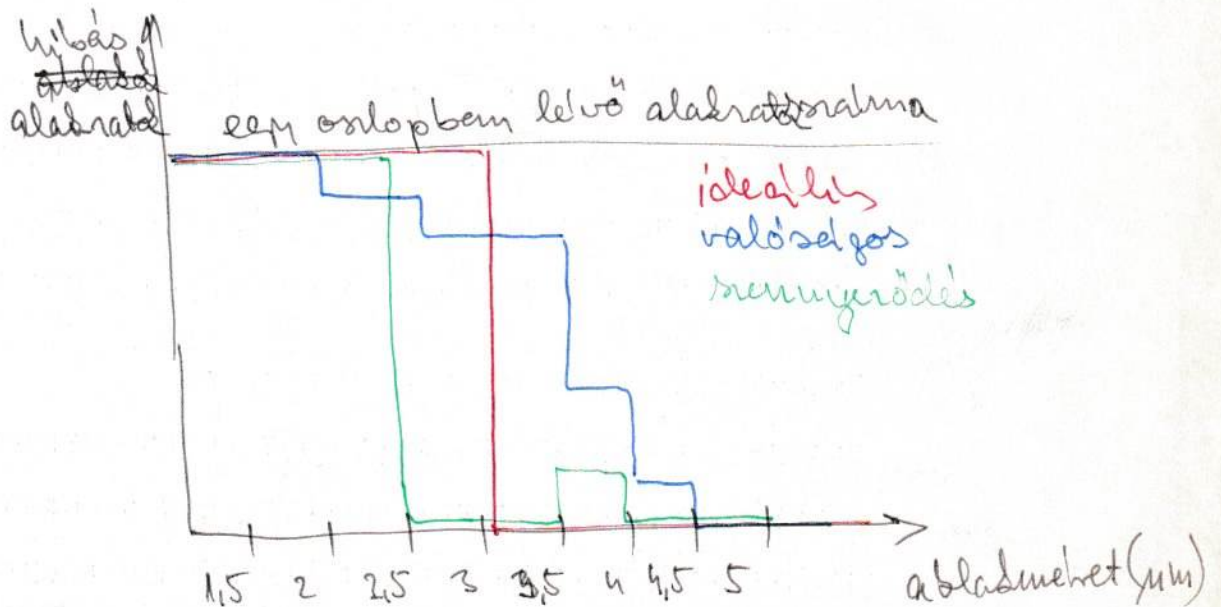 hibás
alakzatok
egy oszlopban lévő alakzatok száma
ideális
valóságos
szennyeződés
1,5 2 2,5 3 3,5 4 4,5 5
ablakméret (µm)